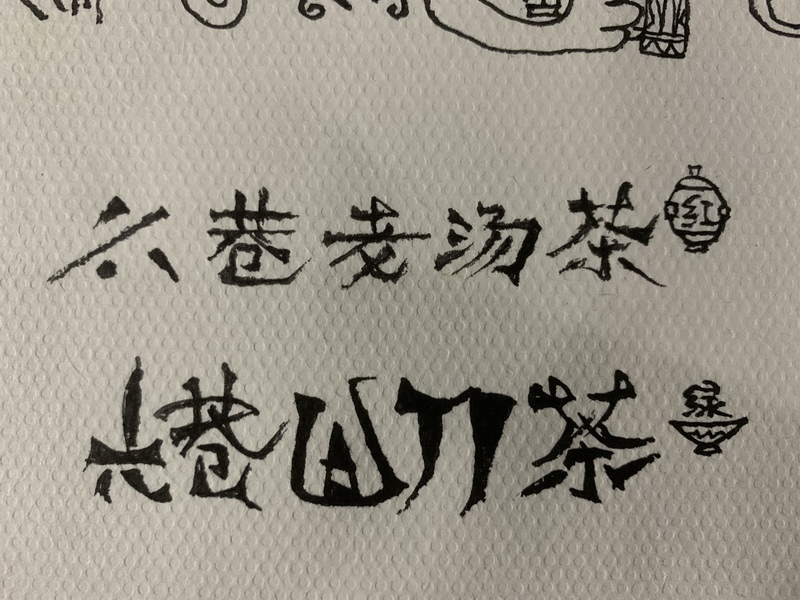 六巷老汤茶 红
六巷茶 绿